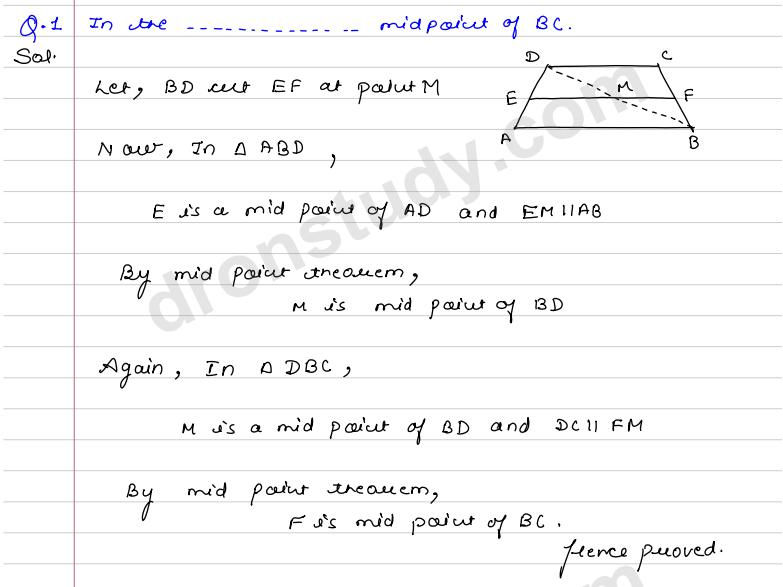 Q.1 In the ------------- midpoint of BC.
Sol.
Let, BD cut EF at point M
D C
E M F
A B
Now, In Δ ABD,
E is a mid point of AD and EM||AB
By mid point theorem,
M is mid point of BD
Again, In Δ DBC,
M is a mid point of BD and DC|| FM
By mid point theorem,
F is mid point of BC.
Hence proved.
dronstudy.com